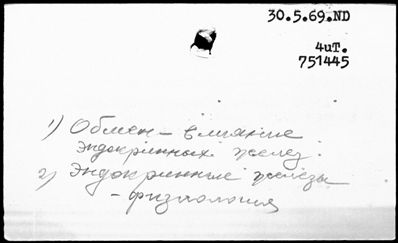 30.5.69.ND
4иТ.
751445
1) Обмен – влияние
эндокринных желез.
2) Эндокринные железы
– физиология